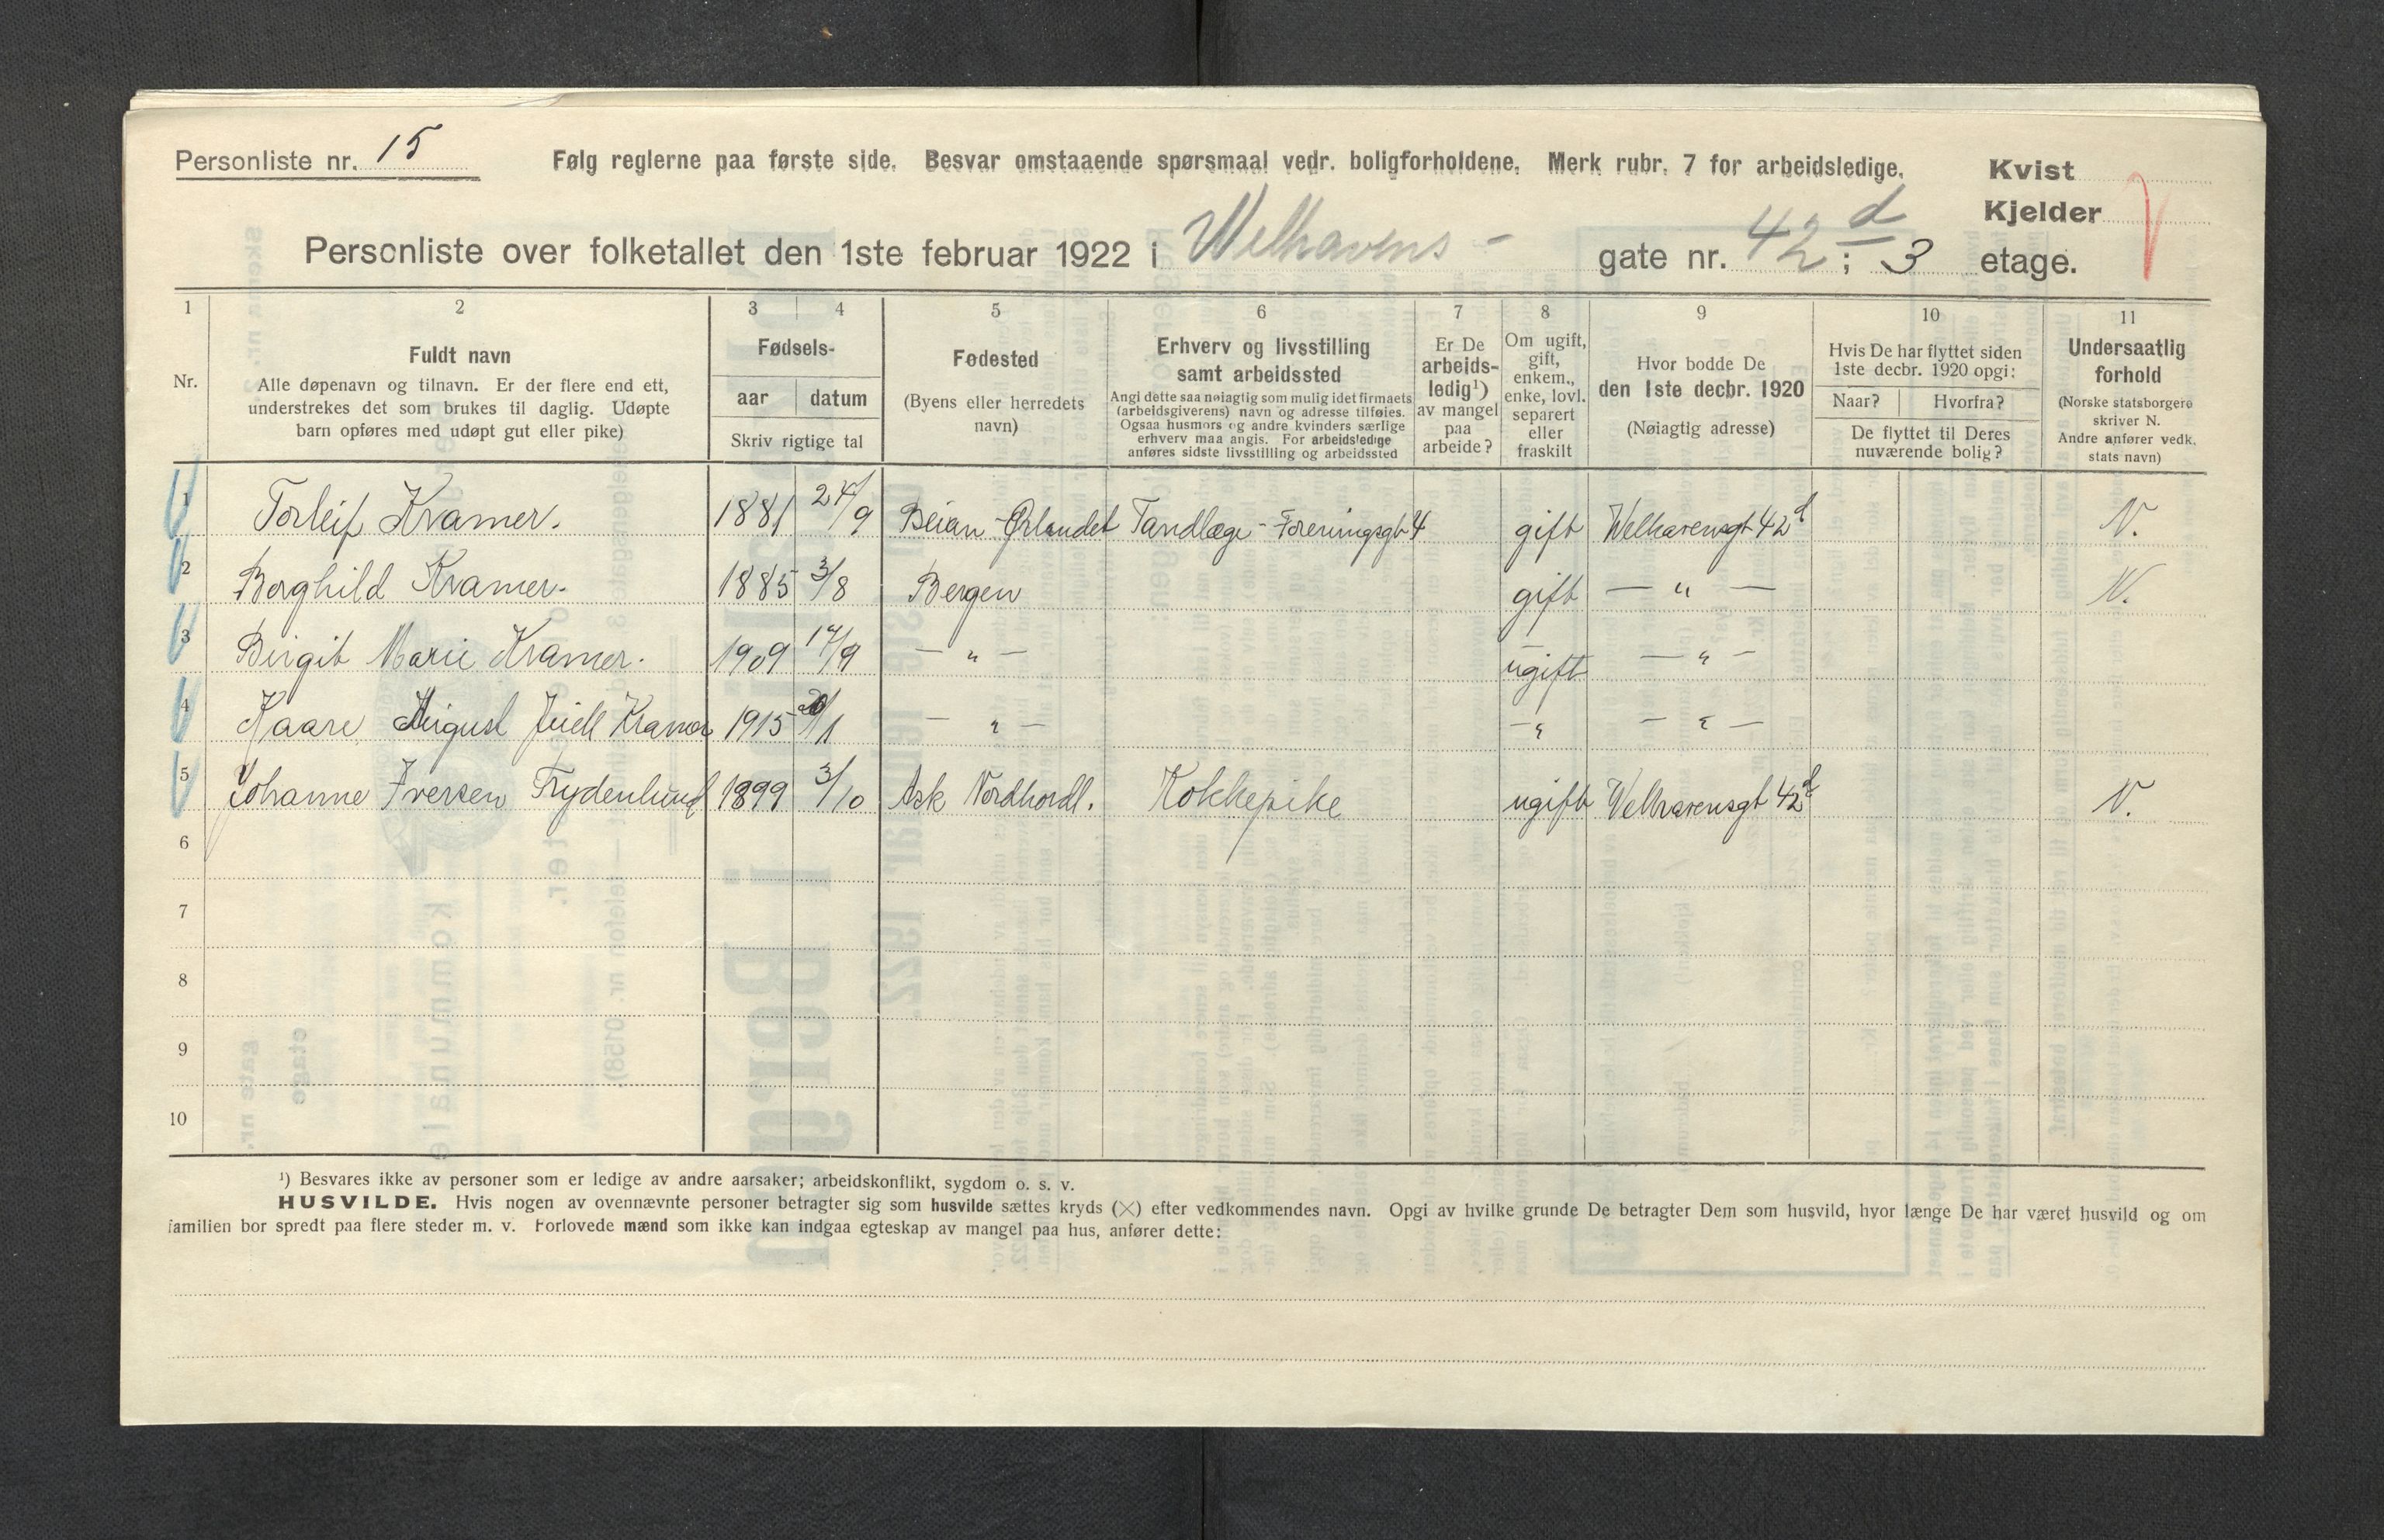 Personliste nr. 15 Følg reglerne paa første side. Besvar omstaaende spørsmaal vedr. boligforholdene. Merk rubr. 7 for arbeidsledige. Kvist
Kjelder
Personliste over folketallet den 1ste februar 1922 i Welhavens - gate nr. 42 d ; 3 etage.
1 2 3 4 5 6 7 8 9 10 11
Nr.
Fuldt navn
Alle døpenavn og tilnavn. Er der flere end ett,
understrekes det som brukes til daglig. Udøpte
barn opføres med udøpt gut eller pike)
Fødsels-
aar datum
Skriv rigtige tal
Fødested
(Byens eller herredets
navn)
Erhverv og livsstilling
samt arbeidssted
Angi dette saa nøiaglig som mulig idet firmaets
(arbeidsgiverens) navn og adresse tilføies.
Ogsaa husmors og andre kvinders særlige
erhverv maa angis. For arbeidsledige
anføres sidste livsstilling og arbeidssted
Er De
arbeids-
ledig¹)
av mangel
paa
arbeide?
Om ugift,
gift,
enkem.,
enke, lovl.
separert
eller
fraskilt
Hvor bodde De
den 1ste decbr. 1920
(Nøiagtig adresse)
Hvis De har flyttet siden
1ste decbr. 1920 opgi:
Naar? Hvorfra?
De flyttet til Deres
nuværende bolig?
Undersaatlig
forhold
(Norske statsborgere
skriver N.
Andre anfører vedk.
stats navn)
1 Torleif Kramer. 1881 24/9 Beian - Ørlandet Tandlæge - Foreningsgt 4 gift Welhavensgt 42 d N.
2 Borghild Kramer. 1885 3/8 Bergen gift — " — N.
3 Birgit Marie Kramer. 1909 14/9 — " — ugift — " —
4 Kaare August Juell Kramer 1915 /1 — " — — " — " —
5 Johanne Iversen Frydenlund 1899 3/10 Ask Nordhordl. Kokkepike ugift Welhavensgt 42 d N.
6
7
8
9
10
¹) Besvares ikke av personer som er ledige av andre aarsaker; arbeidskonflikt, sygdom o. s. v.
HUSVILDE. Hvis nogen av ovennævnte personer betragter sig som husvilde sættes kryds (×) efter vedkommendes navn. Opgi av hvilke grunde De betragter Dem som husvild, hvor længe De har været husvild og om
familien bor spredt paa flere steder m. v. Forlovede mænd som ikke kan indgaa egteskap av mangel paa hus, anfører dette: